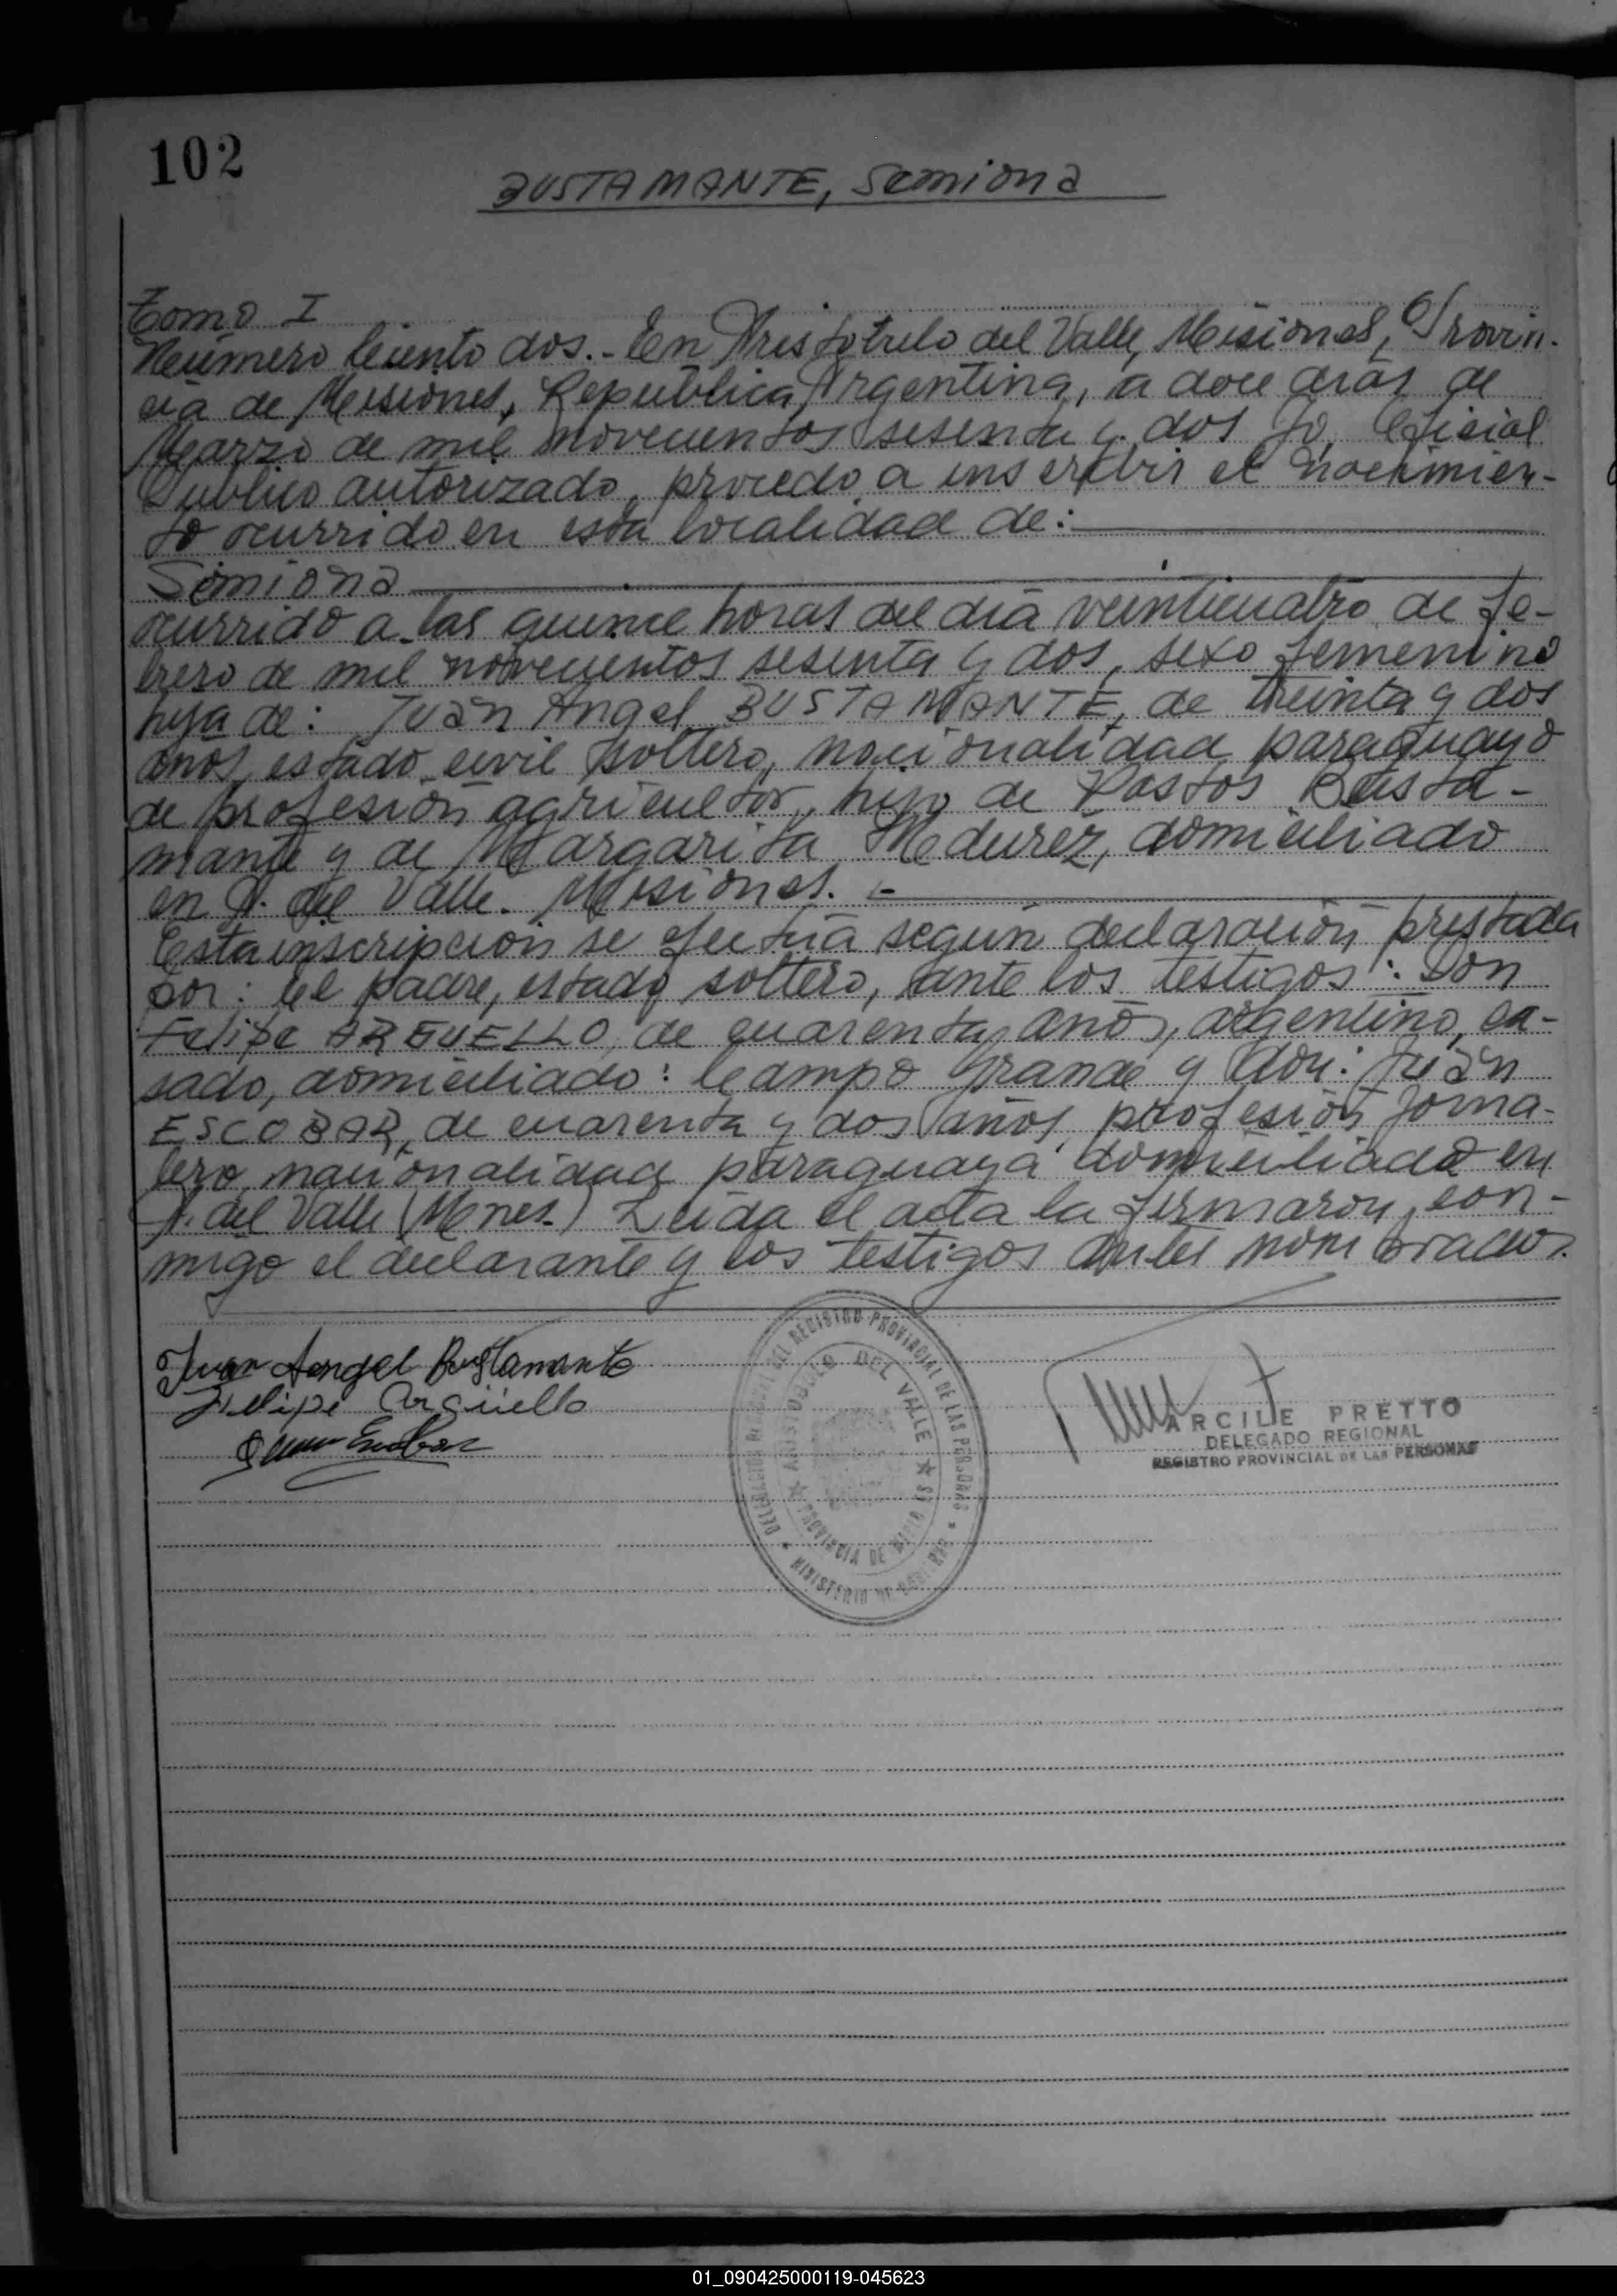 102
BUSTAMANTE, Semiona
Tomo I
Número Ciento dos.- En Aristobulo del Valle, Misiones, Provin-
cia de Misiones, República Argentina, a doce días de
Marzo de mil novecientos sesenta y dos Yo, Oficial
Público autorizado, procedo a inscribir el nacimien-
to ocurrido en esta localidad de:
Simiona
ocurrido a las quince horas del día veinticuatro de fe-
brero de mil novecientos sesenta y dos, sexo femenino
hija de: Juan Angel BUSTAMANTE, de treinta y dos
años, estado civil soltero, nacionalidad paraguayo
de profesión agricultor, hijo de Pastos Busta-
mante y de Margarita, domiciliado
en A. del Valle. Misiones. -
Esta inscripción se efectúa según declaración prestada
por: el padre, estado soltero, ante los testigos: Don
Felipe ARGUELLO, de cuarenta años, argentino, ca-
sado, domiciliado: Campo Grande y don: Juan
ESCOBAR, de cuarenta y dos años, profesión jorna-
lero, nacionalidad paraguaya domiciliado en
A. del Valle (Mnes.) Leída el acta la firmaron con-
migo el declarante y los testigos antes nombrados.
Juan Angel Bustamante
Felipe Argüello
Juan Escobar
DELEGACION REGIONAL DEL REGISTRO PROVINCIAL DE LAS PERSONAS
ARISTOBULO DEL VALLE
PROVINCIA DE MISIONES
MINISTERIO DE GOBIERNO
ARCILE PRETTO
DELEGADO REGIONAL
REGISTRO PROVINCIAL DE LAS PERSONAS
01_090425000119-045623